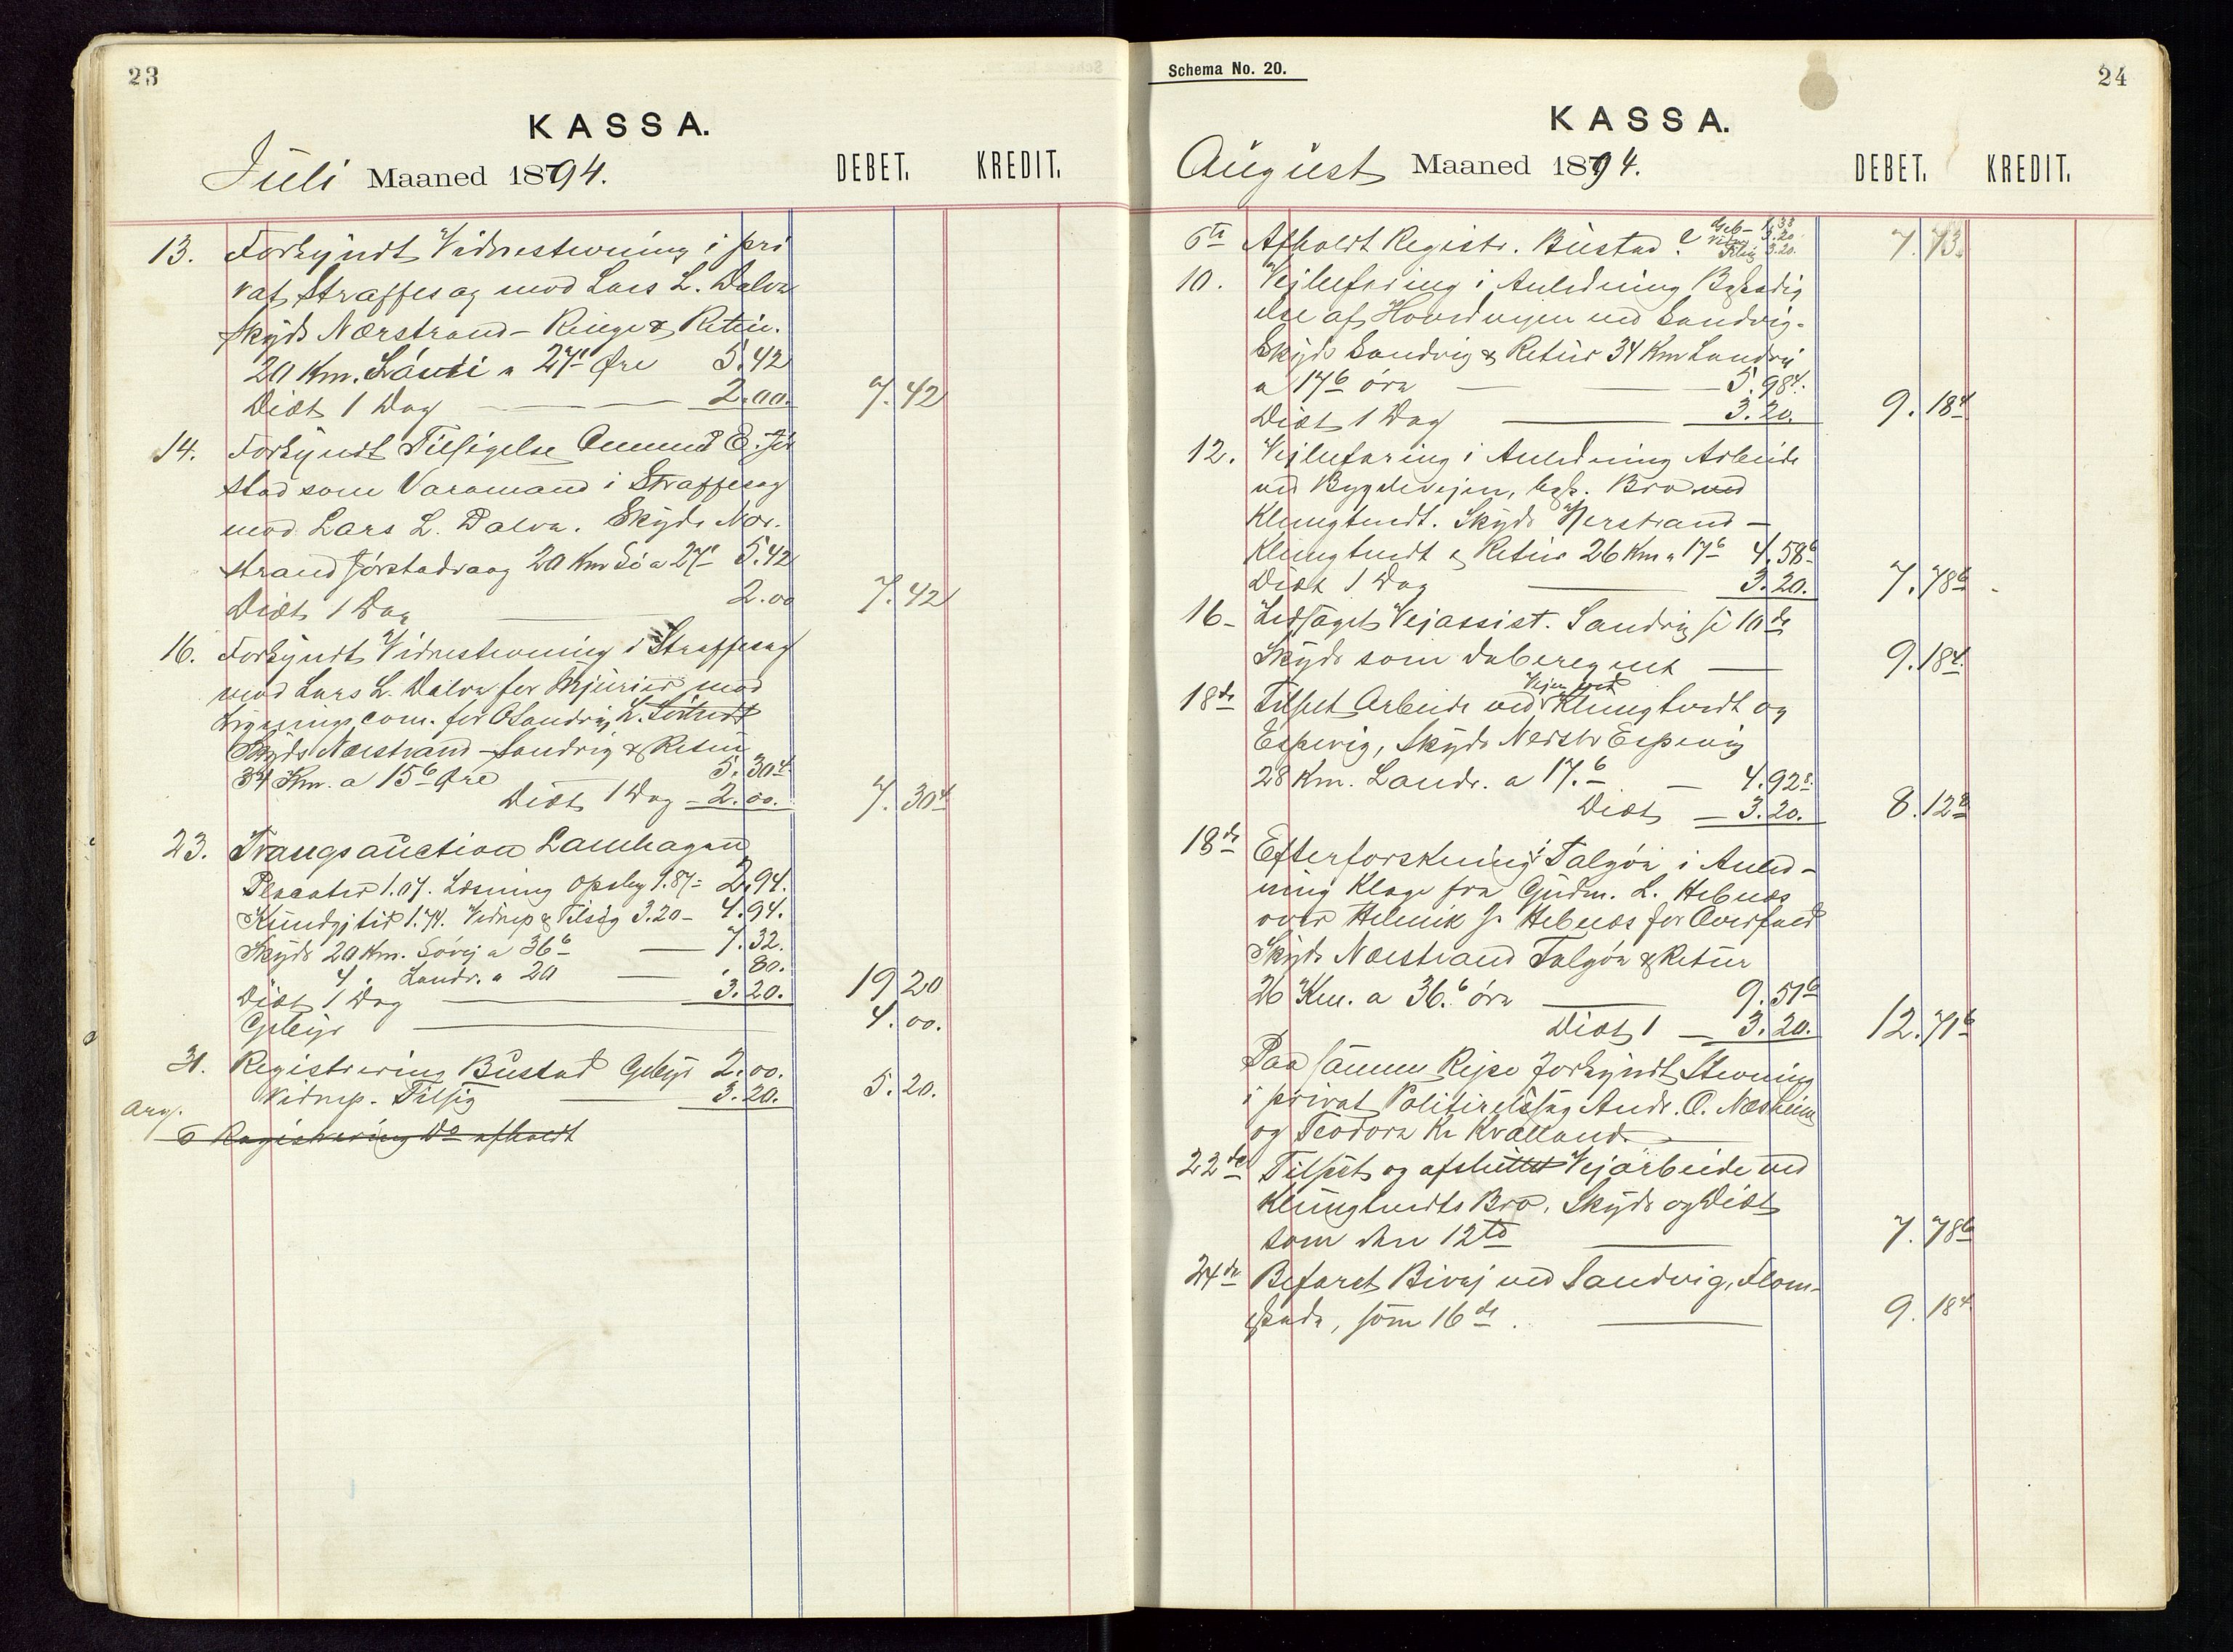 23
KASSA.
Juli Maaned 1894. DEBET. KREDIT.
13. Forkyndt Vidnestevning i pri
vat Straffesag mod Lars L. Dalva
Skyds Nærstrand - & Retur.
20 Km. a 27¹ Øre 5.42
Diæt 1 Dag 2.00. 7.42
14. Forkyndt Tilsigelse E. Jør
stad som Varamand i Straffesag
mod Lars L. Dalva. Skyds Nær-
strand Jørstadvaag 20 Km Sø a 27¹ 5.42
Diæt 1 Dag 2.00 7.42
16. Forkyndt Vidnestevning i Straffesag
mod Lars L. Dalva for Injurier mod
Ligningscom. for O Sandvig, L.
Skyds Nærstrand - Sandvig & Retur
34 Km. a 15⁶ Øre 5.30⁴
Diæt 1 Dag - 2.00. 7.30⁴
23. Tvangsauction Lamhagen
Placater 1.07. Læsning Opslag 1.87 = 2.94.
Kundgj tid 1.74. Vidnep & Tilsig 3.20 - 4.94.
Skyds 20 Km. Søvej a 36⁶ 7.32.
4 . Landv. a 20 . 80.
Diæt 1 Dag 3.20. 19 20
Gebyr 4.00.
31. Registrering Bustad Gebyr 2.00.
Vidnep. Tilsig 3.20. 5.20.
Aug.
6 Registrering Do afholdt
Schema No. 20.
24
KASSA.
August Maaned 1894. DEBET. KREDIT.
6te Afholdt Registr. Bustad Geb - 1.33 3.20 3.20. 7.73.
10. Vejbefaring i Anledning Beskadig
else af Hovedvejen ved Sandvig.
Skyds Sandvig & Retur 34 Km Landvej
a 17⁶ øre 5.98⁴.
Diæt 1 Dag 3.20. 9.18⁴
12. Vejbefaring i Anledning Arbeide
ved Bygdevejen, Bro ved
Klungtvedt. Skyds Nerstrand -
Klungtvedt & Retur 26 Km a 17⁶ 4.58⁶
Diæt 1 Dag 3.20. 7.78⁶
16 - Ledsaget Vejassist. Sandvig se 10de
Skyds som da beregnet 9.18⁴.
18de Tilset Arbeide ved Vejen ved Klungtvedt og
Espevig, Skyds Nerstr Espevig
28 Km. Landv. a 17.⁶ - 4.92⁸
Diæt - 3.20. 8.12⁸
18de Efterforskning i Talgøe i Anled-
ning Klage fra Gudm. L. Hebnæs
over Helmik J. Hebnæs for Overfald
Skyds Nærstrand Talgøe & Retur
26 Km. a 36.⁶ øre 9.51⁶
Diæt 1 - 3.20. 12.71⁶
Paa samme Rejse forkyndt Stevning
i privat Politiretssag Andr. O. Næsheim
og Teodora Kr Kvalland.
22de Tilset og afsluttet Vejarbeide ved
Klungtvedts Bro. Skyds og Diæt
som den 12te 7.78⁶
24de Befaret Bivej ved Sandvig, Flom-
skade, som 16de. 9.18⁴